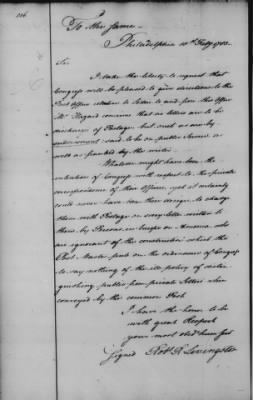 To the Same
Philadelphia 10th Feby 1783.
Sir
I take the liberty to request that
Congress will be pleased to give directions to the
Post Office relative to Letters to and from this Office
Mr Hazard conceives that no letters are to be
exchanged of Postage but such as are by
endorsement said to be on public Service as
well as franked by the writer.
Whatever might have been the
intention of Congress with respect to the private
correspondence of their Officers, yet it certainly
could never have been their design to charge
them with Postage on every letter written to
them by Persons in Europe or America who
are ignorant of the construction which the
Post Master puts on the ordinance of Congress
to say nothing of the ill policy of distin
guishing public from private Letters when
conveyed by the common Post
I have the honor to be
with great Respect
your most obed hum Sert
Signed Robt R Livingston